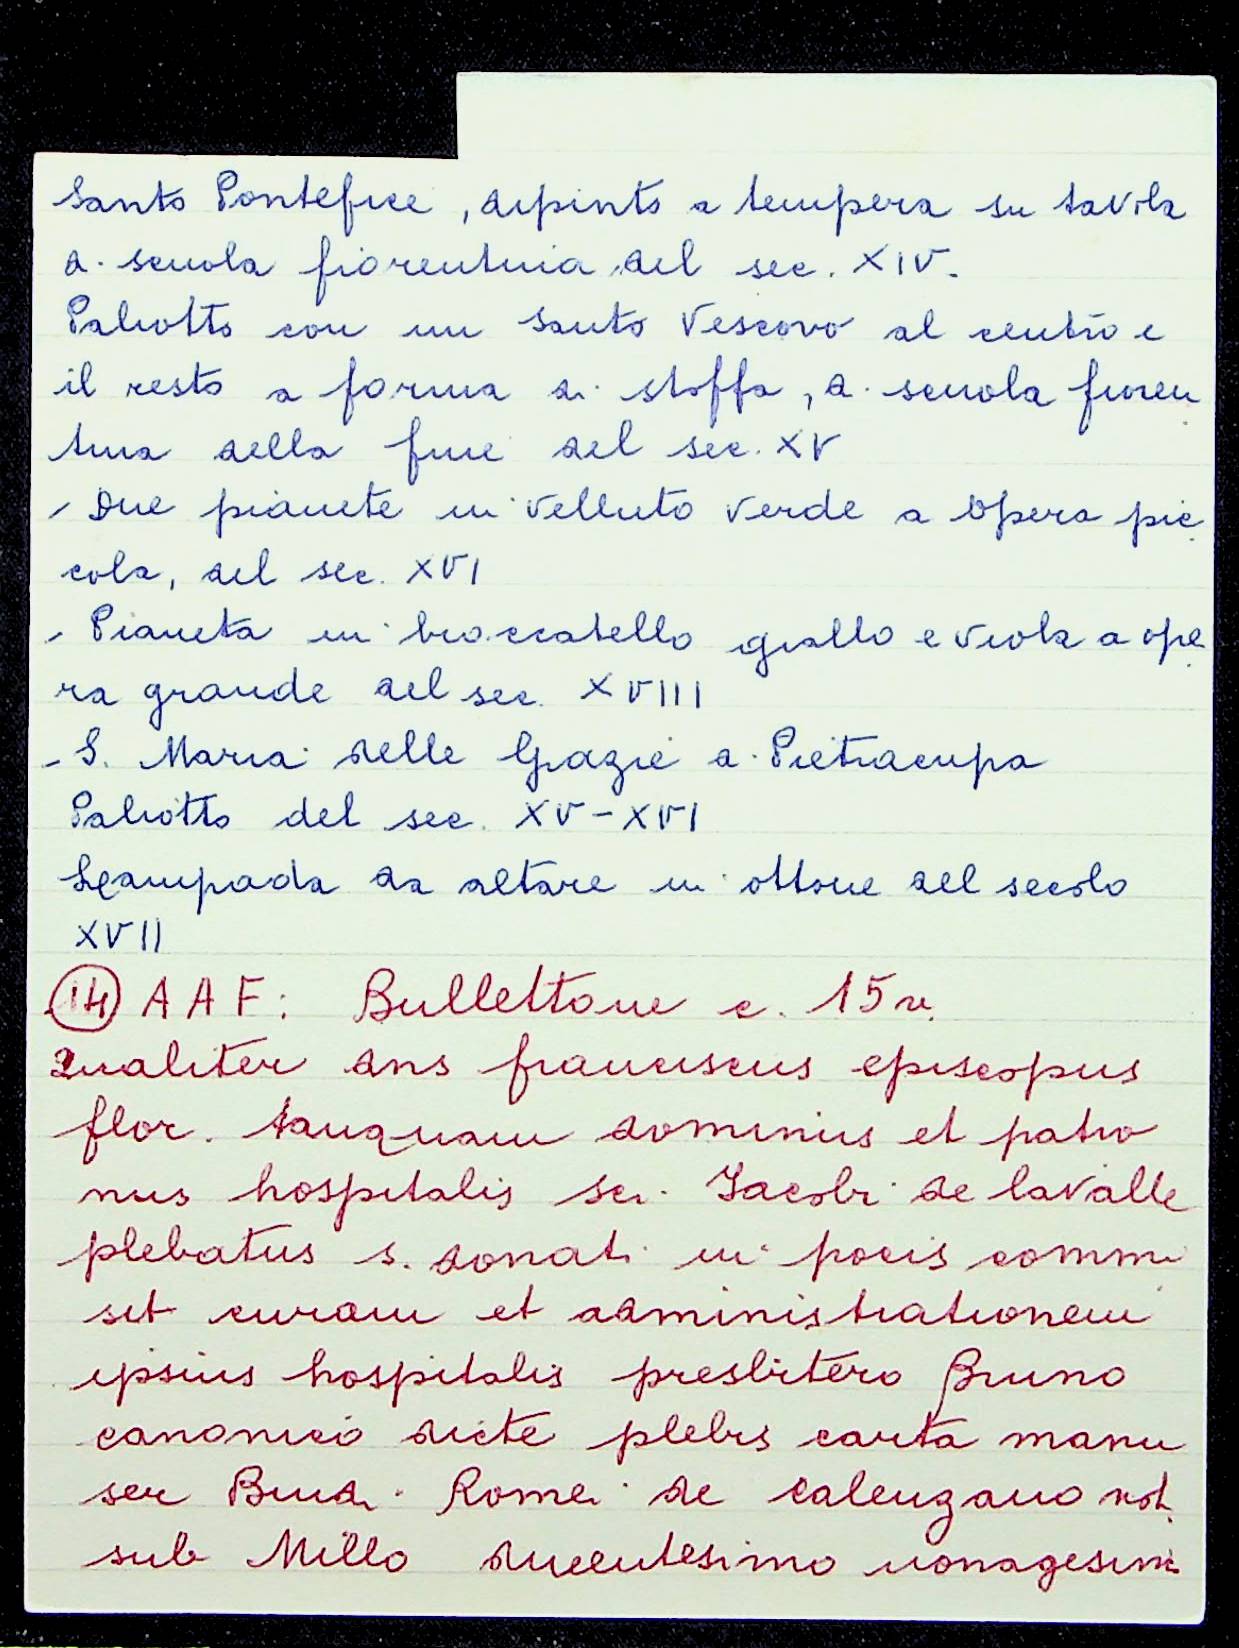 Santo Pontefice, dipinto a tempera su tavola
di scuola fiorentina, del sec. XIV.
Paliotto con un santo Vescovo al centro e
il resto a forma di stoffa, di scuola fioren
tina della fine del sec. XV
- Due pianete in velluto verde a opera pic
cola, del sec. XVI
- Pianeta in broccatello giallo e viola a ope
ra grande del sec. XVIII
- S. Maria delle Grazie a Pietracupa
Paliotto del sec. XV-XVI
Lampada da altare in ottone del secolo
XVII
14 AAF: Bullettone c. 15 v.
Qualiter dns franciscus episcopus
flor. tanquam dominus et patro
nus hospitalis sci Jacobi de lavalle
plebatus s. donati in pocis commi
sit curam et administrationem
ipsius hospitalis presbitero Bruno
canonico dicte plebis carta manu
ser Bindi Romei de calenzano not.
sub Millo ducentesimo nonagesimo